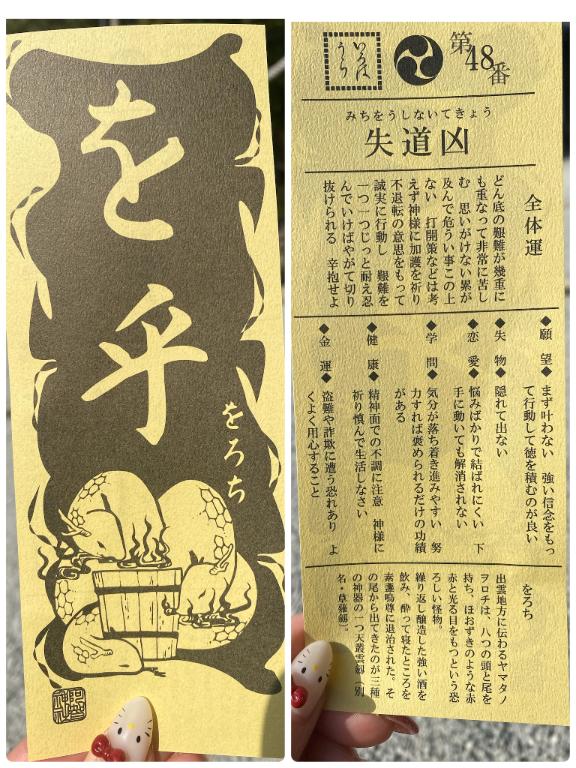 を
乎
をろち
いろは
うら
第48番
みちをうしないてきょう
失道凶
全体運
どん底の艱難が幾重に
も重なって非常に苦し
む　思いがけない累が
及んで危うい事この上
ない　打開策などは考
えず神様に加護を祈り
不退転の意思をもって
誠実に行動し　艱難を
一つ一つじっと耐え忍
んでいけばやがて切り
抜けられる　辛抱せよ
◆願望◆まず叶わない　強い信念をもっ
て行動して徳を積むのが良い
◆失物◆隠れて出ない
◆恋愛◆悩みばかりで結ばれにくい　下
手に動いても解消されない
◆学問◆気分が落ち着き進みやすい　努
力すれば褒められるだけの功績
がある
◆健康◆精神面での不調に注意　神様に
祈り慎んで生活しなさい
◆金運◆盗難や詐欺に遭う恐れあり　よ
くよく用心すること
をろち
出雲地方に伝わるヤマタノ
ヲロチは、八つの頭と尾を
持ち、ほおずきのような赤
赤と光る目をもつという恐
ろしい怪物。
繰り返し醸造した強い酒を
飲み、酔って寝たところを
素戔嗚尊に退治された。そ
の尾から出てきたのが三種
の神器の一つ天叢雲剣（別
名・草薙剣）。